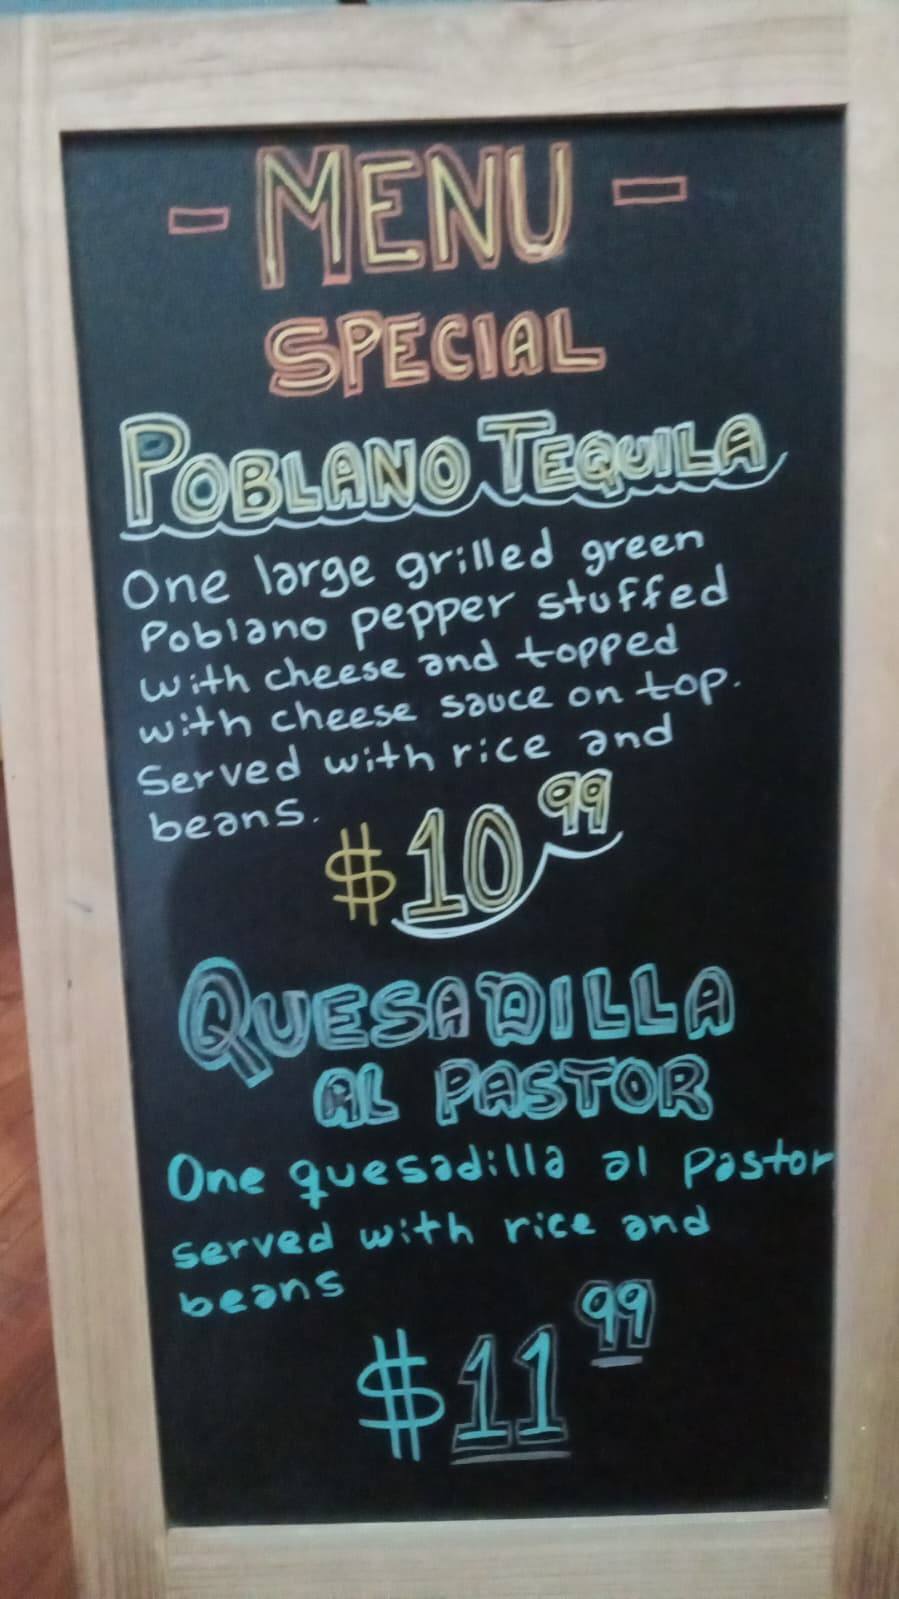 - MENU -
SPECIAL
POBLANO TEQUILA
One large grilled green
Poblano pepper stuffed
with cheese and topped
with cheese sauce on top.
Served with rice and
beans.
$10 99
QUESADILLA
AL PASTOR
One quesadilla al pastor
served with rice and
beans
$11 99